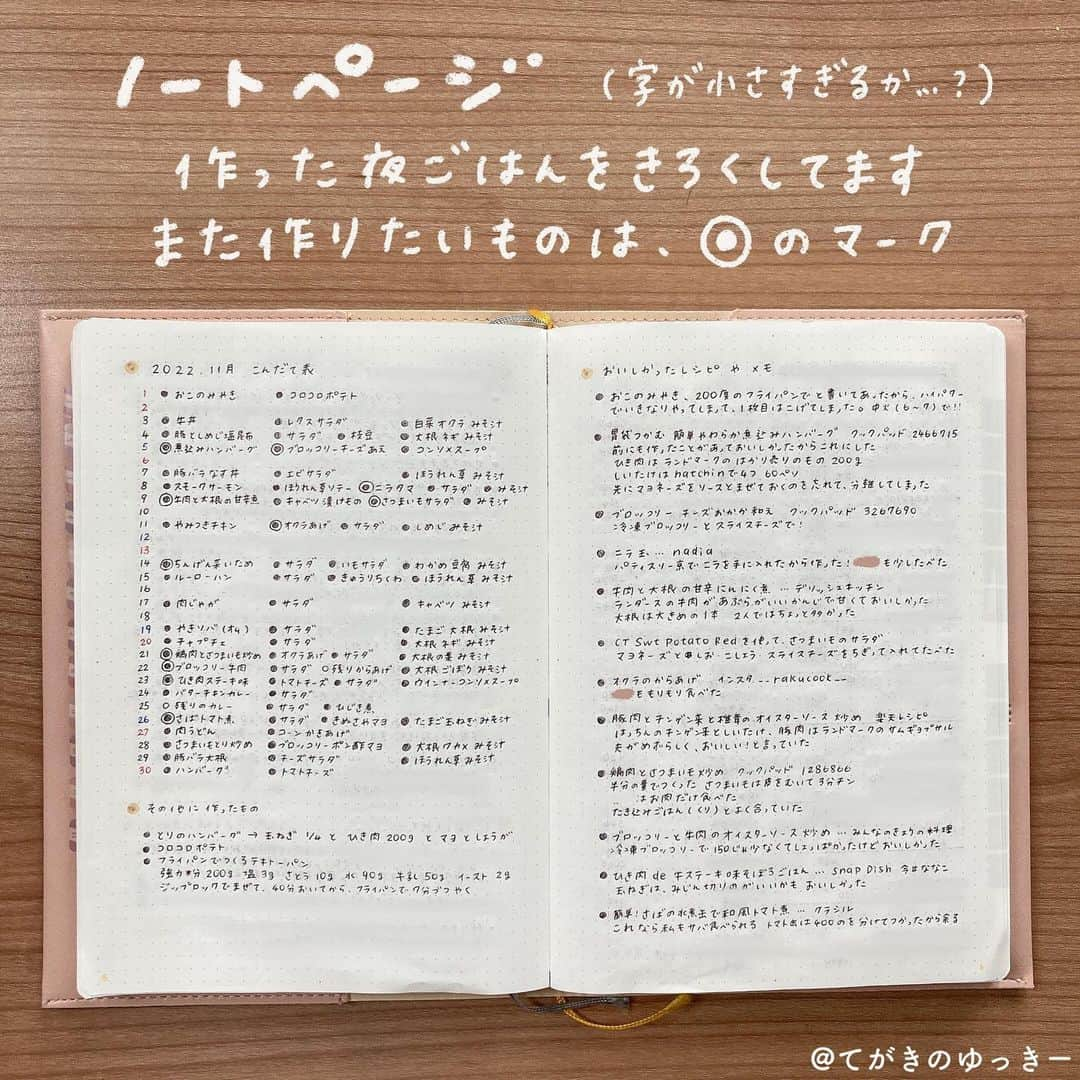 ノートページ (字が小さすぎるか…?)
作った夜ごはんをきろくしてます
また作りたいものは、◉のマーク
2022.11月 こんだて表
1 ● おこのみやき ● コロコロポテト
2
3 ● 牛丼 ● レタスサラダ ● 白菜オクラ みそ汁
4 ● 豚としめじ塩昆布 ● サラダ ● 枝豆 ● 大根 ネギ みそ汁
5 ◉ 煮込みハンバーグ ◉ ブロッコリーチーズあえ ● コンソメスープ
6
7 ● 豚バラなす丼 ● エビサラダ ● ほうれん草 みそ汁
8 ● スモークサーモン ● ほうれん草ソテー ◉ ニラタマ ● サラダ ● みそ汁
9 ◉ 牛肉と大根の甘辛煮 ● キャベツ漬けもの ◉ さつまいもサラダ ● みそ汁
10
11 ● やみつきチキン ◉ オクラあげ ● サラダ ● しめじ みそ汁
12
13
14 ◉ ちんげん菜いため ● サラダ ● いもサラダ ● わかめ豆腐 みそ汁
15 ● ルーローハン ● サラダ ● きゅうりちくわ ● ほうれん草 みそ汁
16
17 ● 肉じゃが ● サラダ ● キャベツ みそ汁
18
19 ● やきソバ(オム) ● サラダ ● たまご 大根 みそ汁
20 ● チャプチェ ● サラダ ● 大根 ネギ みそ汁
21 ◉ 鶏肉とさつまいも炒め ● オクラあげ ● サラダ ● 大根の葉 みそ汁
22 ◉ ブロッコリー牛肉 ● サラダ ○ 残りからあげ ● 大根 ごぼう みそ汁
23 ◉ ひき肉ステーキ味 ● トマトチーズ ● サラダ ● ウインナーコンソメスープ
24 ● バターチキンカレー ● サラダ
25 ○ 残りのカレー ● サラダ ● ひじき煮
26 ◉ さばトマト煮 ● サラダ ● きぬさやマヨ ● たまご玉ねぎ みそ汁
27 ● 肉うどん ● コーン かきあげ
28 ● さつまいもとり炒め ● ブロッコリーポン酢マヨ ● 大根 ワカメ みそ汁
29 ● 豚バラ大根 ● チーズサラダ ● ほうれん草 みそ汁
30 ● ハンバーグ ● トマトチーズ
その他に作ったもの
● とりのハンバーグ → 玉ねぎ 1/4 と ひき肉 200g と マヨ と しょうが
● コロコロポテト
● フライパンでつくるテキトーパン
強力粉 200g 塩 3g さとう 10g 水 90g 牛乳 50g イースト 2g
ジップロックでまぜて、40分おいてから、フライパンで7分づつやく
おいしかったレシピ や メモ
● おこのみやき、200度のフライパンでと書いてあったから、ハイパワー
でいきなりやってしまって、1枚目はこげてしまった。中火(6〜7)で!!
● 胃袋つかむ 簡単やわらか煮込みハンバーグ クックパッド 2466715
前にも作ったことがあっておいしかったからこれにした
ひき肉は ランドマークの はかり売りのもの 200g
しいたけは hatchinで4つ 60ペソ
先にマヨネーズをソースとまぜておくのを忘れて、分離してしまった
● ブロッコリー チーズおかか和え クックパッド 3267690
冷凍ブロッコリーとスライスチーズで!
● ニラ玉 … nadia
パティスリー京でニラを手に入れたから作った! も少したべた
● 牛肉と大根の甘辛にんにく煮 … デリッシュキッチン
ランダースの牛肉があぶらがいいかんじで甘くておいしかった
大根は大きめの1本 2人ではちょっと多かった
● CT Swt Potato Redを使って、さつまいものサラダ
マヨネーズとしお こしょう スライスチーズをちぎって入れてたべた
● オクラのからあげ インスタ __rakucook__
ももりもり食べた
● 豚肉とチンゲン菜と椎茸の オイスターソース 炒め 楽天レシピ
はっちんのチンゲン菜としいたけ、豚肉はランドマークのサムギョプサル
夫がめずらしく、おいしい!と言っていた
● 鶏肉とさつまいも炒め クックパッド 1286866
半分の量でつくった さつまいもは皮をむいて3分チン
はお肉だけ食べた
たき込みごはん(くり)とよく合っていた
● ブロッコリーと牛肉のオイスターソース 炒め … みんなのきょうの料理
冷凍ブロッコリーで 150じゃ少なくてしょっぱかったけどおいしかった
● ひき肉 de 牛ステーキ味そぼろごはん … snap Dish 今井ななこ
玉ねぎは、みじん切りのがいいかも おいしかった
● 簡単!さばの水煮缶で和風トマト煮 … クラシル
これなら私もサバ食べられる トマト缶は400のを分けてつかったから余る
@てがきのゆっきー